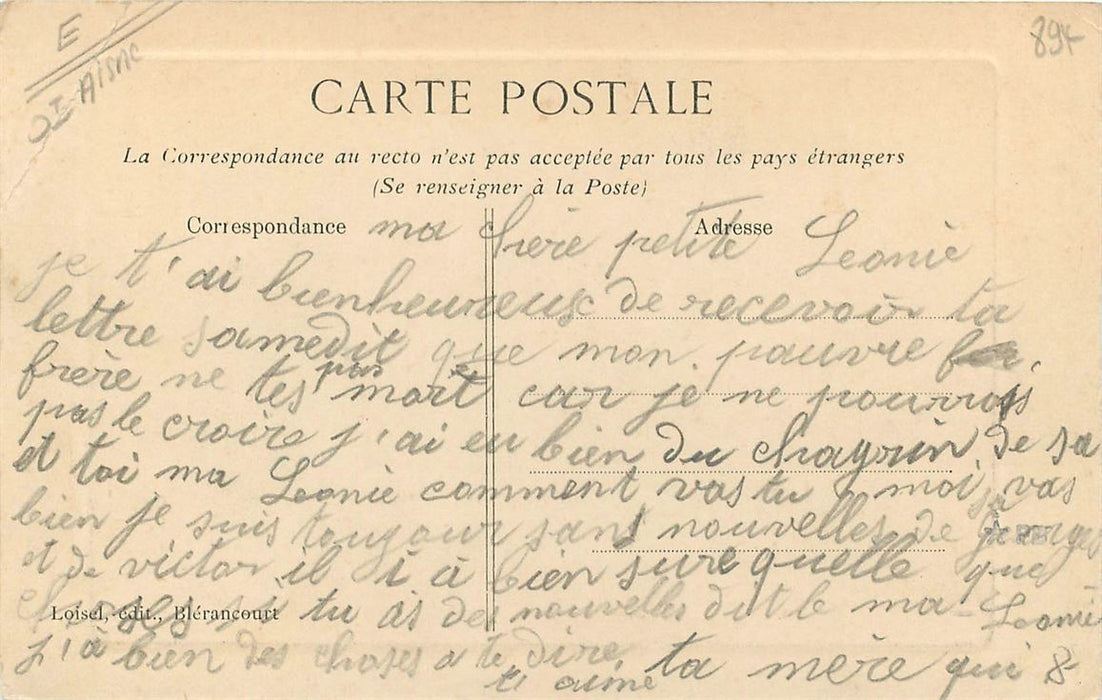 E
02 Aisne
894
CARTE POSTALE
La Correspondance au recto n'est pas acceptée par tous les pays étrangers
(Se renseigner à la Poste)
Correspondance
Adresse
ma chère petite Leonie
je t'ai bienheureuse de recevoir ta
lettre samedit que mon pauvre
frère ne tes pas mort car je ne pourrais
pas le croire j'ai eu bien du chagrin de sa
et toi ma Leonie comment vas tu moi sa vas
bien je suis toujour sans nouvelles de
et de victor il i à bien sure quelle que
choses si tu as des nouvelles dit le ma Leonie
Loisel, édit., Blérancourt
j'ià bien des choses a te dire ta mère qui
t'aime